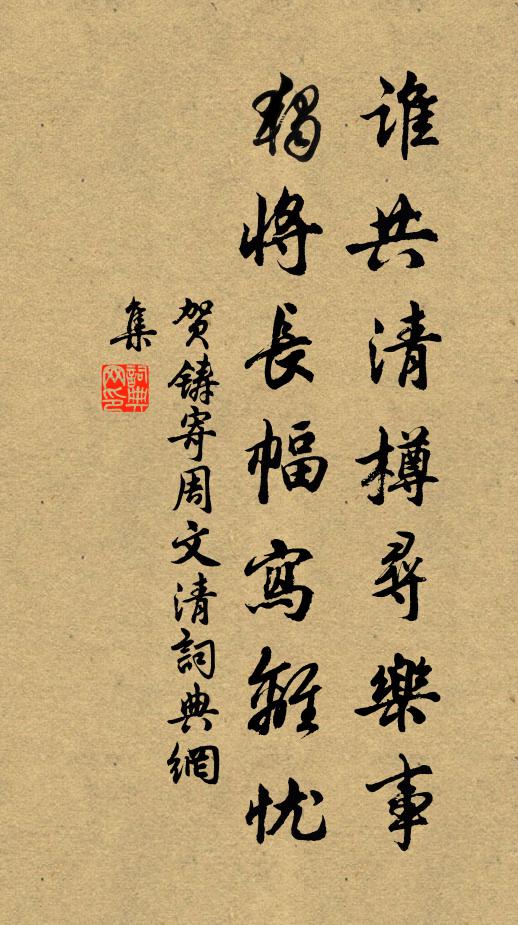 谁共清樽尋樂事
獨將長幅寫離忧
贺铸寄周文清詞典網
集
詞典网印